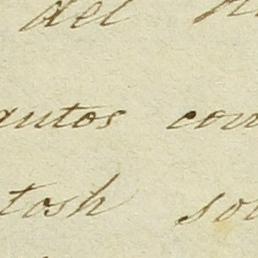 del
autos con
tosh so